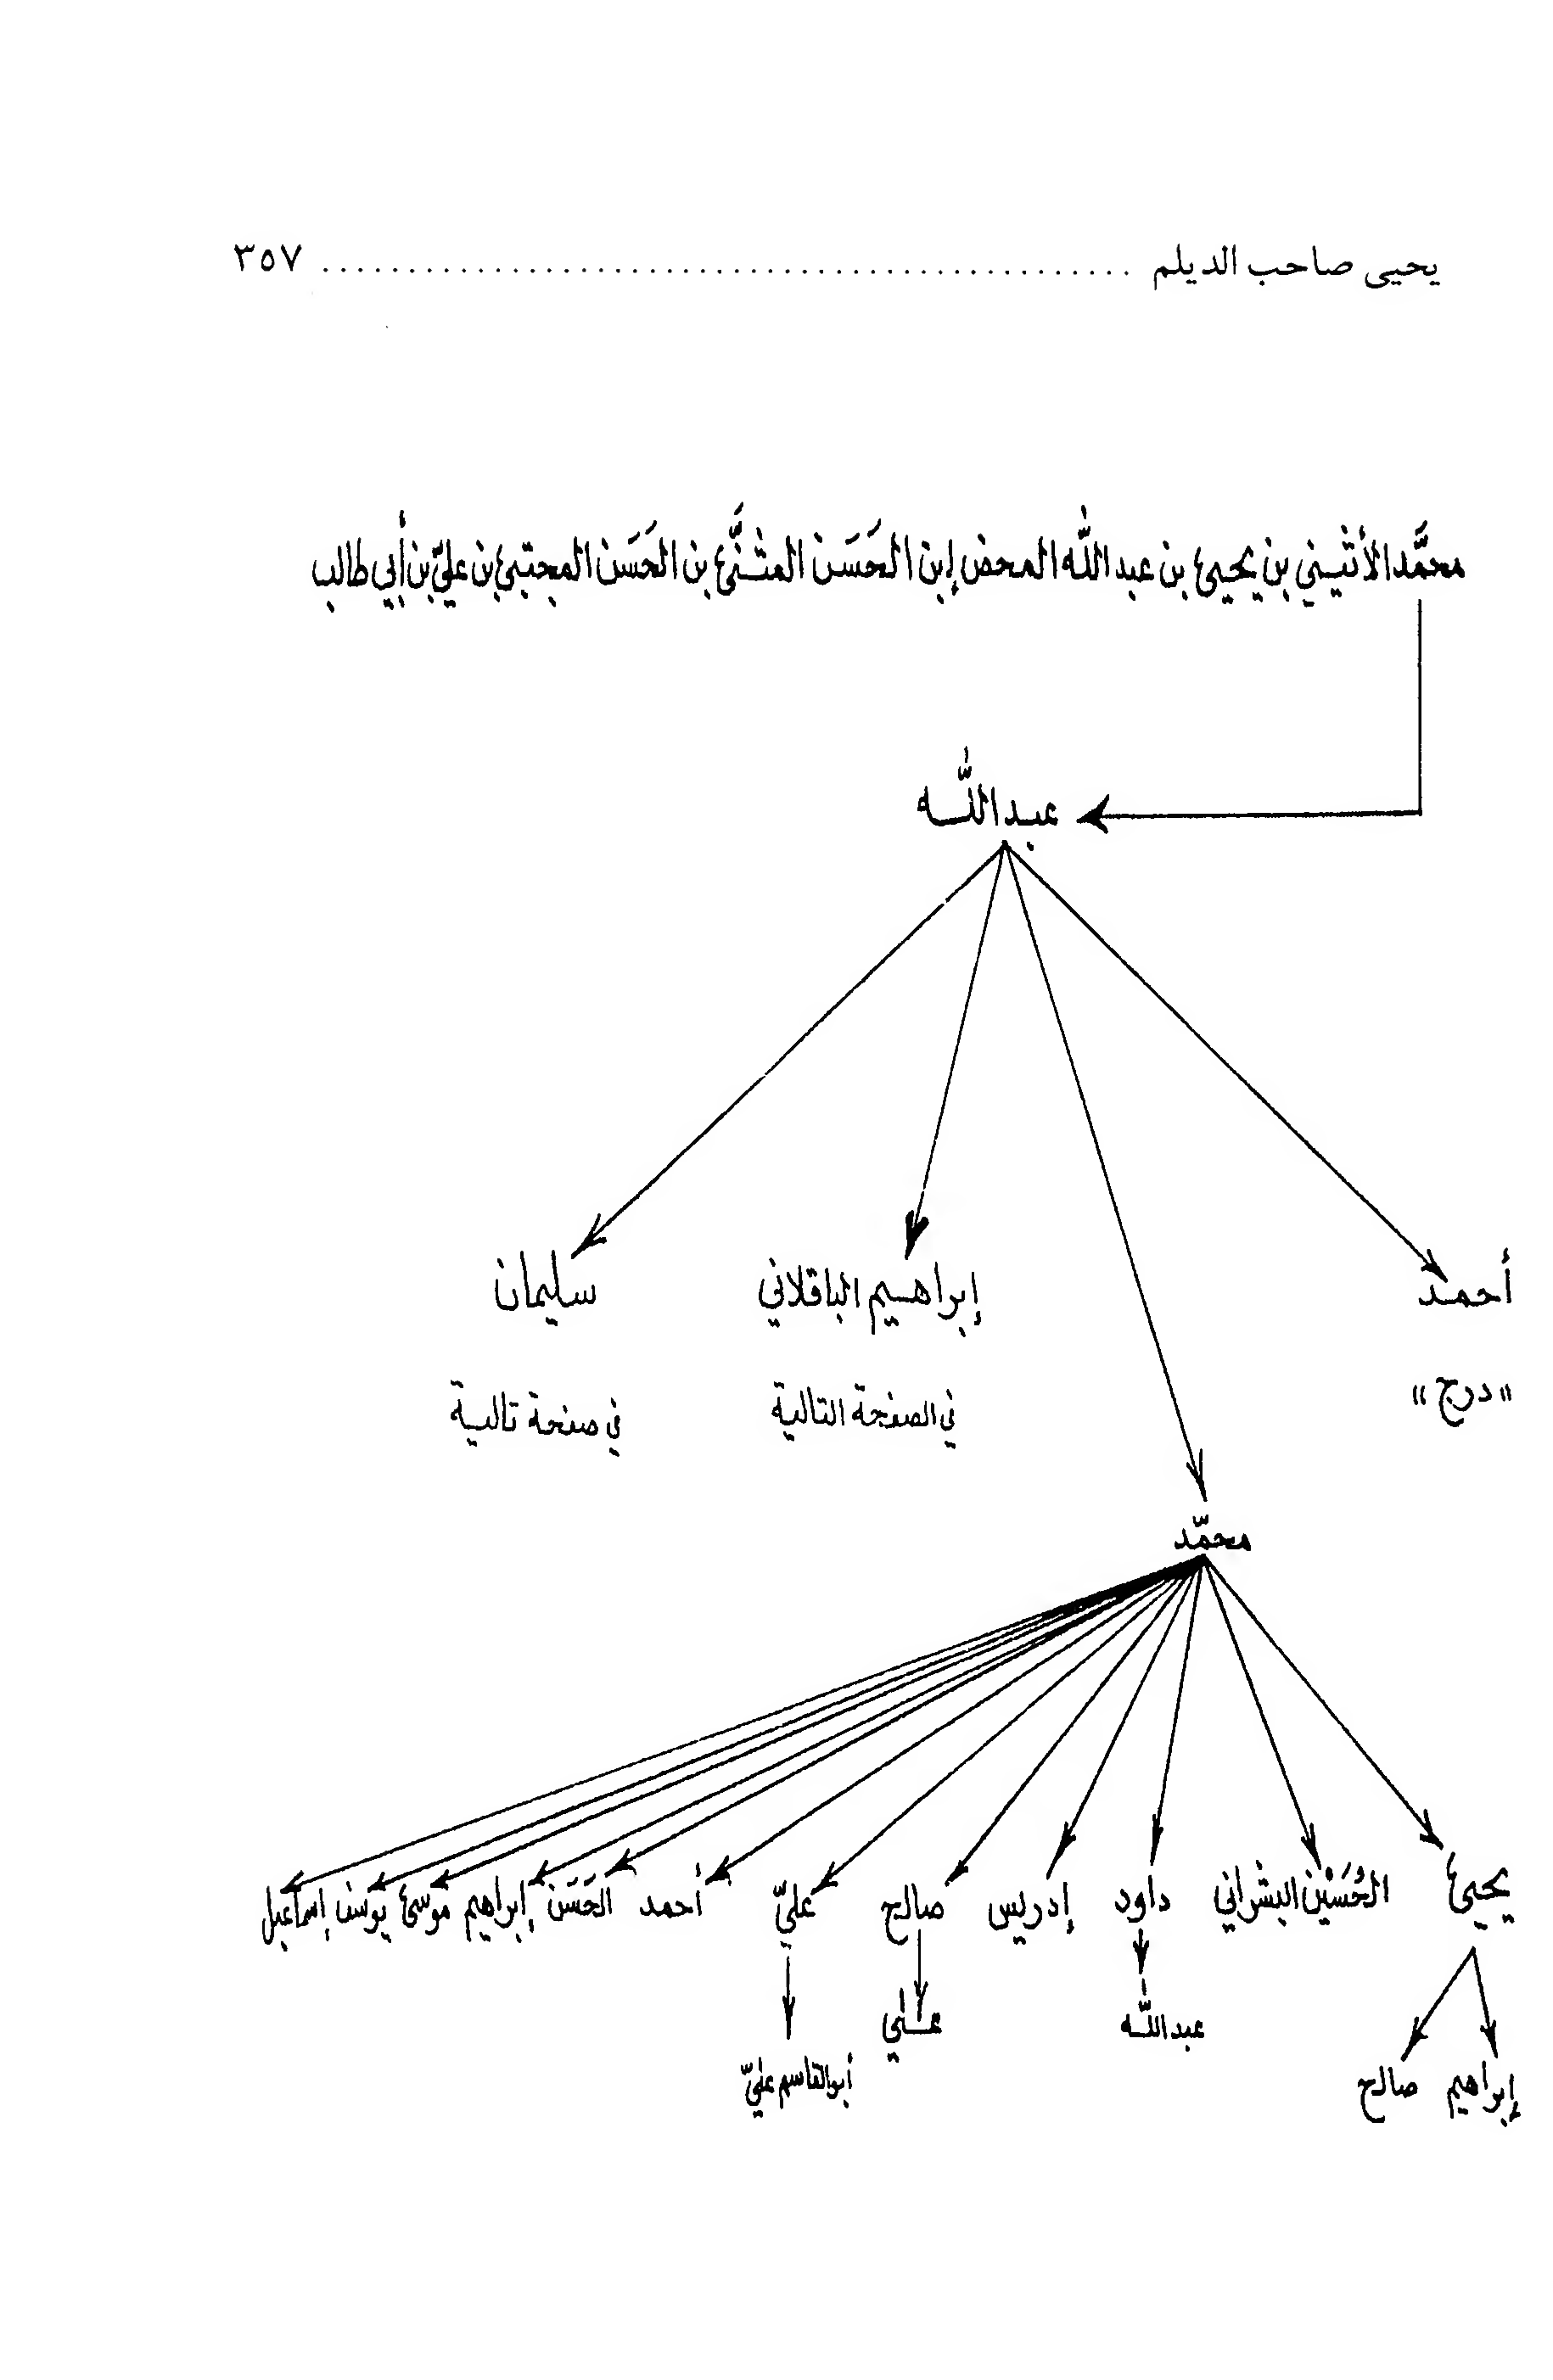 يحيى صاحب الديلم ................................................ ٣٥٧
محمَّد الأثيني بن يحيىٰ بن عبد اللّٰه المحض إبن الحَسَن المثنَّىٰ بن الحَسَن المجتبىٰ بن عليّ بن أبي طالب
عبد اللّٰه
أحمد إبراهيم الباقلاني سليمان
"درج" في الصفحة التالية في صفحة تالية
محمّد
يحيىٰ الحُسَيْن البشراني داود إدريس صالح عليّ أحمد الحَسَن إبراهيم موسىٰ يوسف إسماعيل
إبراهيم صالح عبد اللّٰه عـلي أبو القاسم عليّ